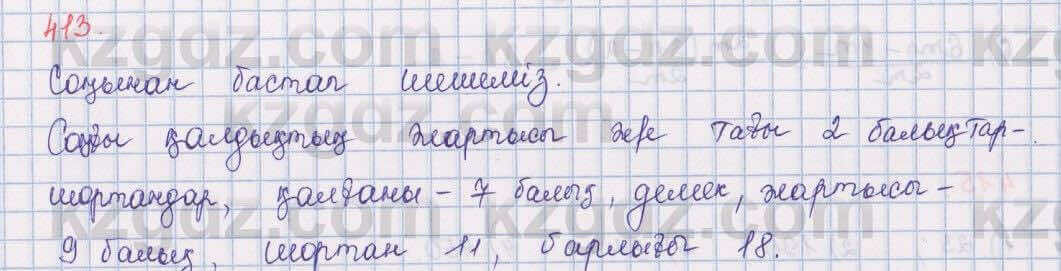 413.
Соңынан бастап шешеміз.
Соңғы қалдықтың жартысы және тағы 2 балықтар-
шортандар, қалғаны - 7 балық, демек, жартысы -
9 балық, шортан 11, барлығы 18.
kzgdz.com